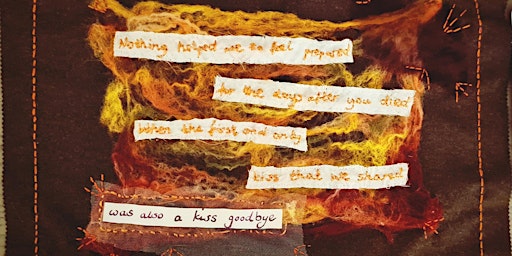 Nothing helped me to feel prepared
for the days after you died
when the first and only
kiss that we shared
was also a kiss goodbye